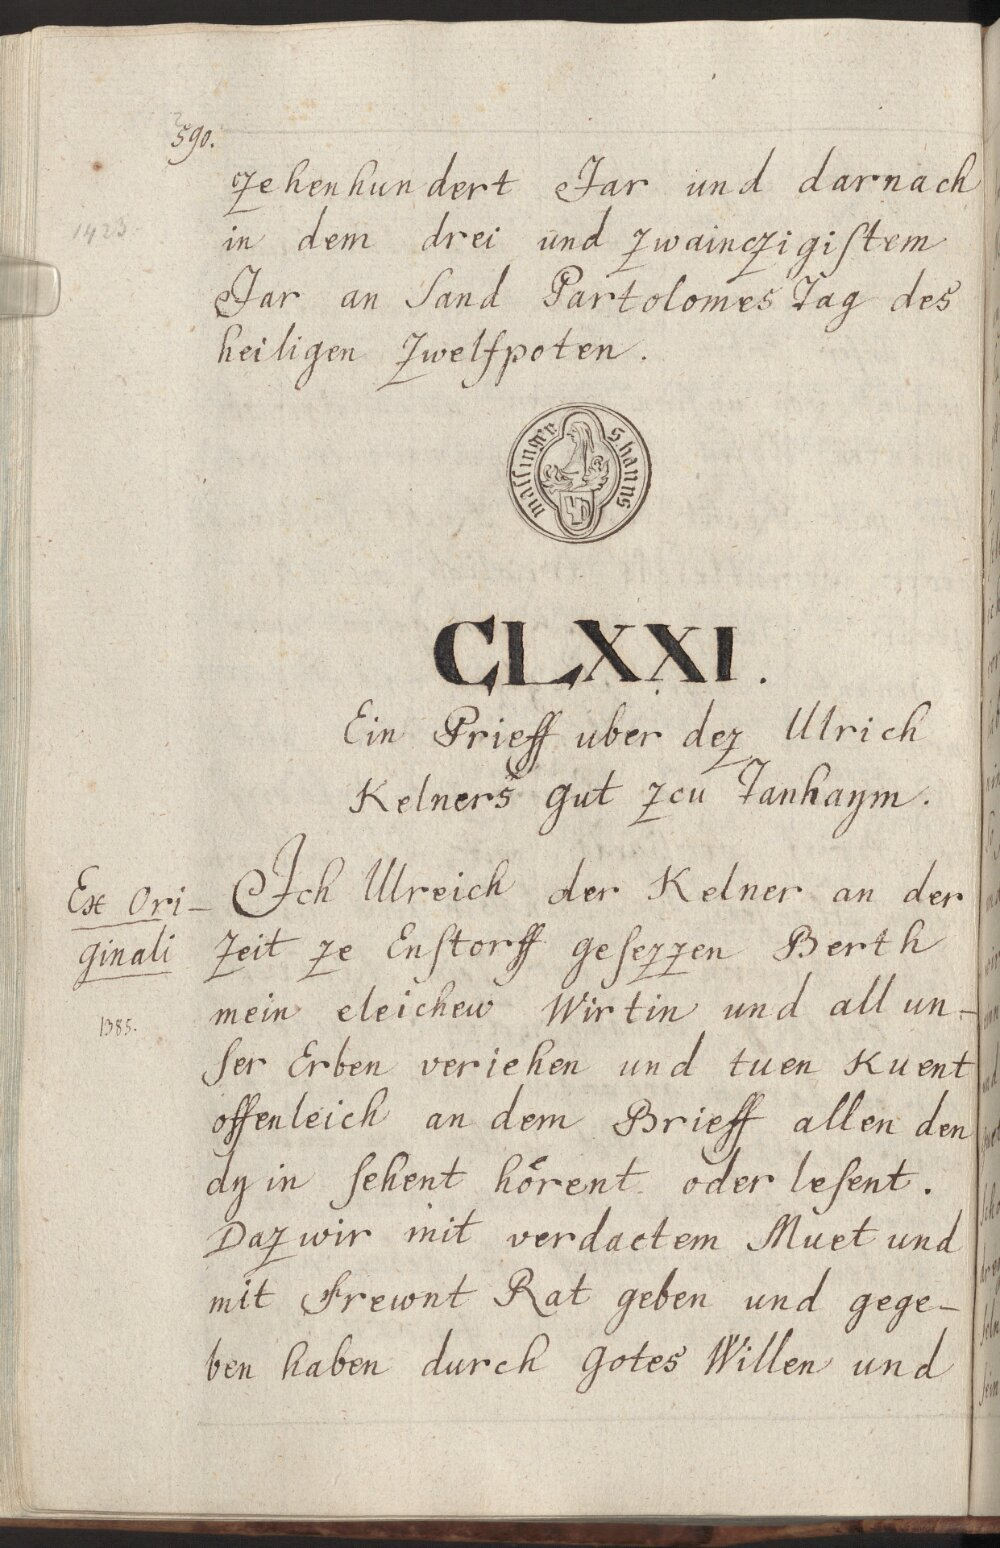 590.
zehenhundert Jar und darnach
1423.
in dem drei und zwainczigiſtem
Jar an Sand Partolomes Tag des
heiligen Zwelfpoten.
s. hanns maſſinger
CLXXI.
Ein Prieff uber dez Ulrich
Kelners gut zcu Tanhaym.
Ex Ori-
ginali
1385.
Ich Ulreich der Kelner an der
Zeit ze Enſtorff geſezzen Berth
mein eleichew Wirtin und all un-
ſer Erben veriehen und tuen Kuent
offenleich an dem Brieff allen den
dy in ſehent hörent oder leſent.
Daz wir mit verdactem Muet und
mit Frewnt Rat geben und gege-
ben haben durch Gotes Willen und